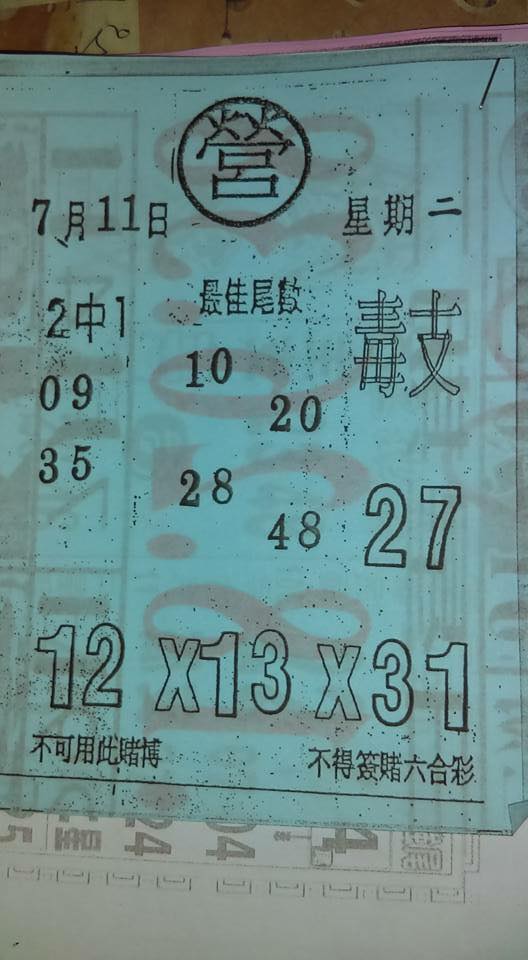 營
7月11日 星期二
2中1 最佳尾數 毒支
09 10
20
35 28
48 27
12 X 13 X 31
不可用此賭博 不得簽賭六合彩
24 04 4